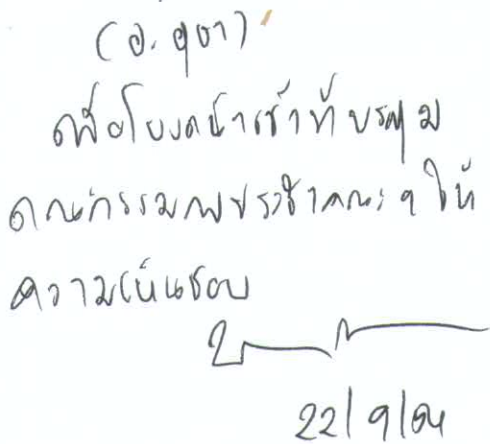 (อ. สุดา)
เพื่อโปรดนำเข้าที่ประชุม
คณะกรรมการประจำคณะฯ ให้
ความเห็นชอบ
22/9/54